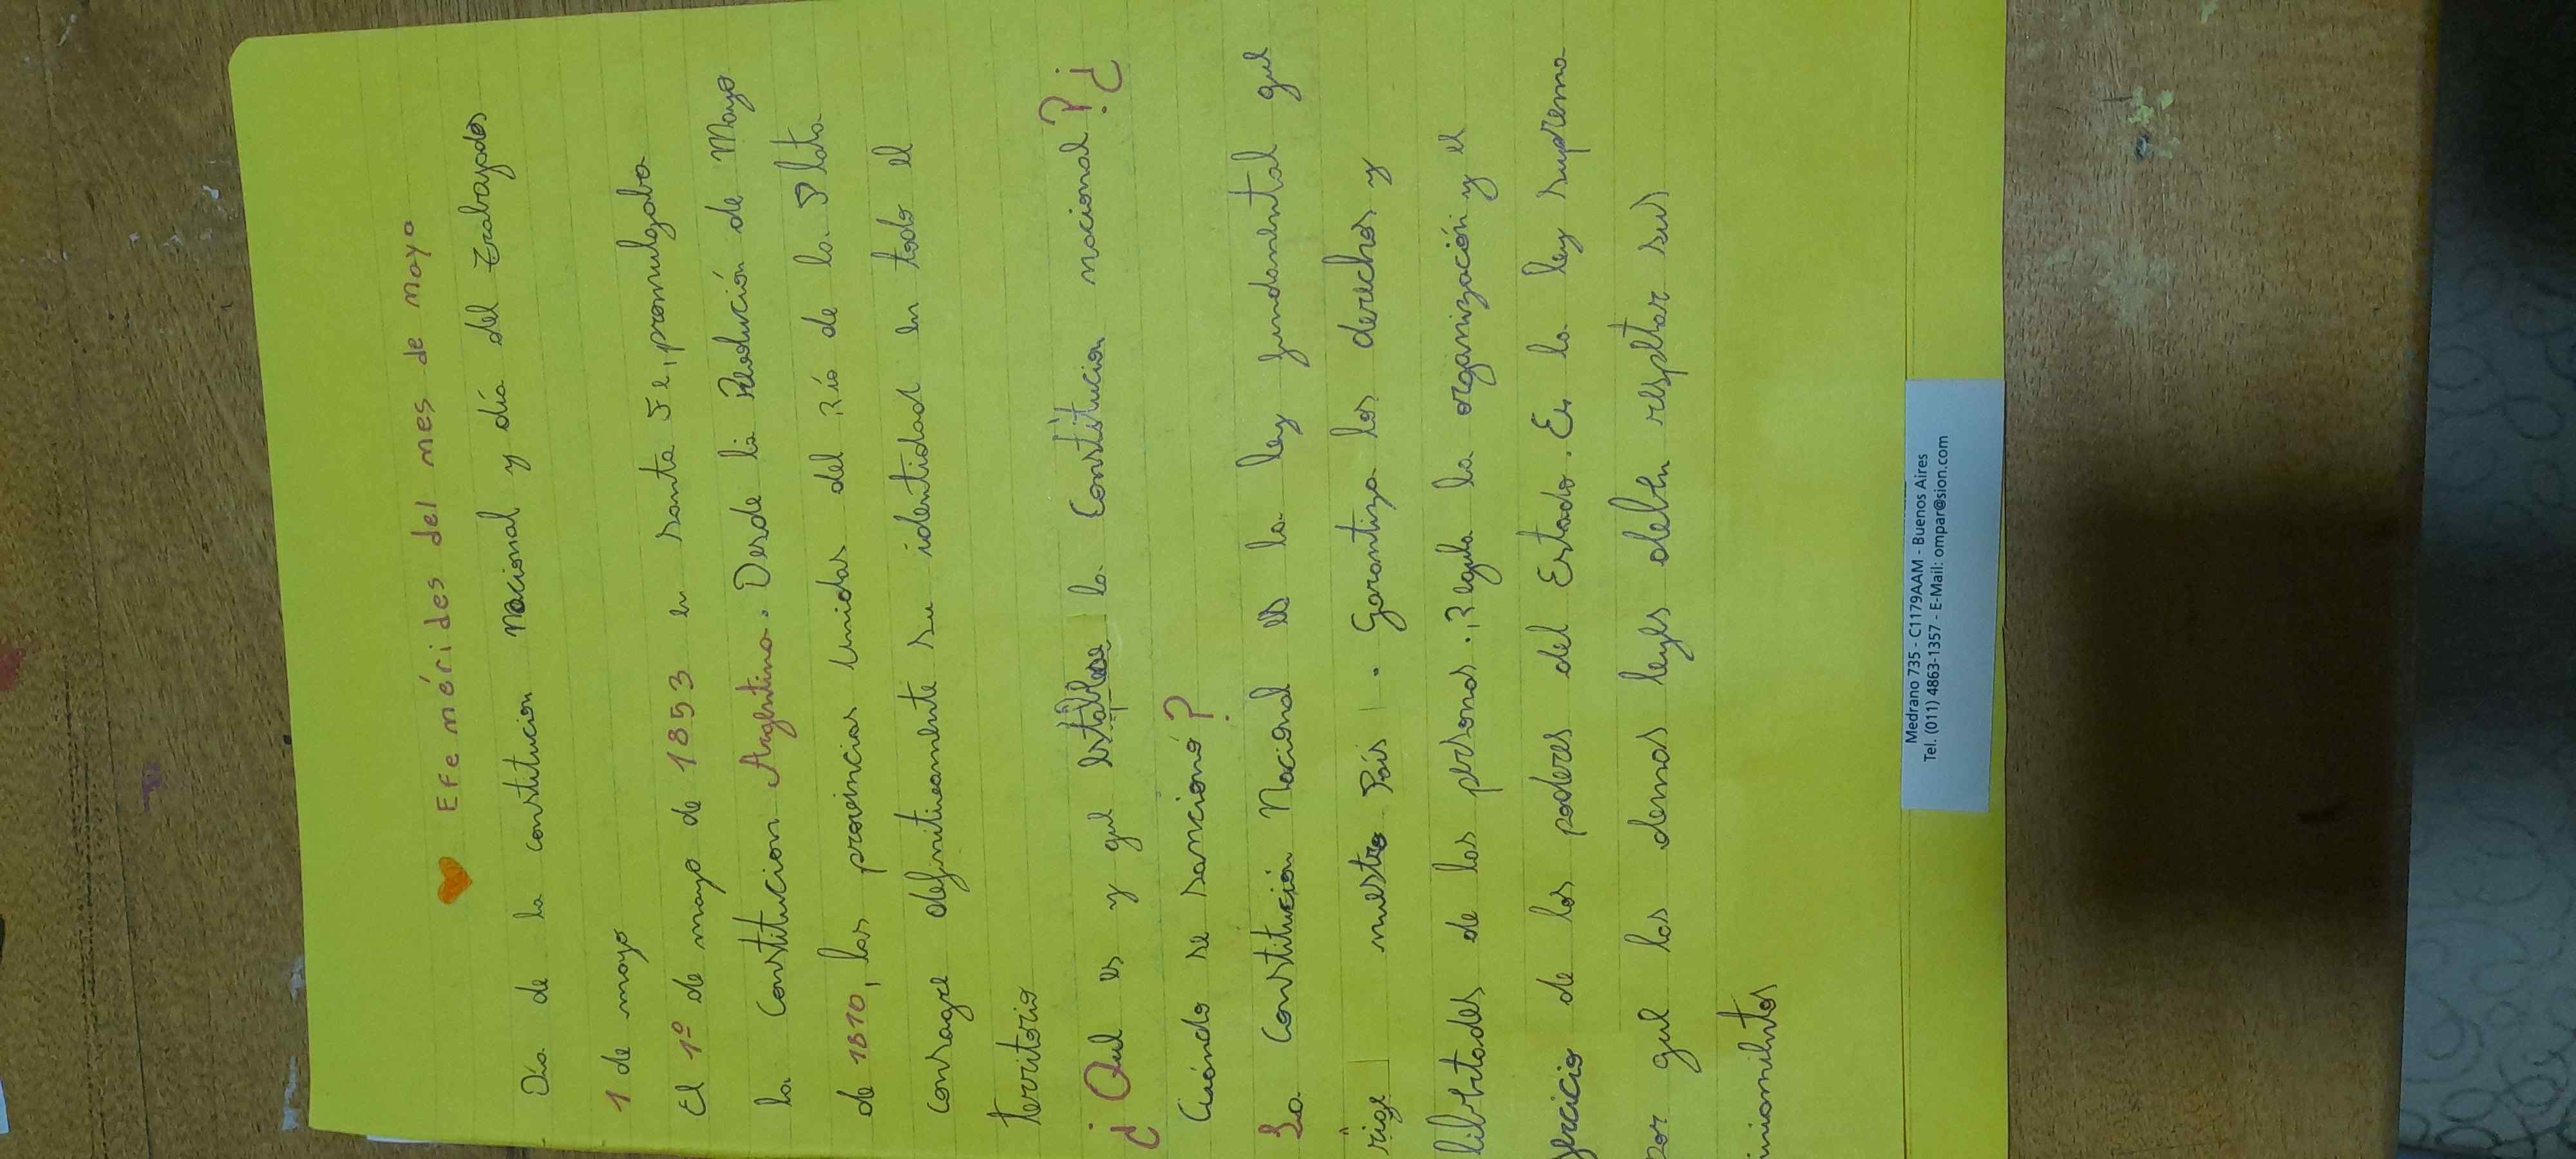 Efemérides del mes de mayo
Día de la constitucion nacional y día del trabajador
1 de mayo
El 1º de mayo de 1853 en santa Fe, promulgaba
la Constitucion Argentina. Desde la Revolución de Mayo
de 1810, las provincias Unidas del Río de la Plata
consagre definitivamente su identidad en todo el
territorio
¿Que es y que establese la Constitucion nacional? ¿
Cuándo se sancionó?
La Constitución Nacional es la ley fundamental que
rige nuestro País. Garantiza los derechos y
libertades de las personas. Regula la organización y el
ejercicio de los poderes del Estado. Es la ley suprema
por que las demas leyes deben respetar sus
Medrano 735 - C1179AAM - Buenos Aires
Tel. (011) 4863-1357 - E-Mail: ompar@sion.com